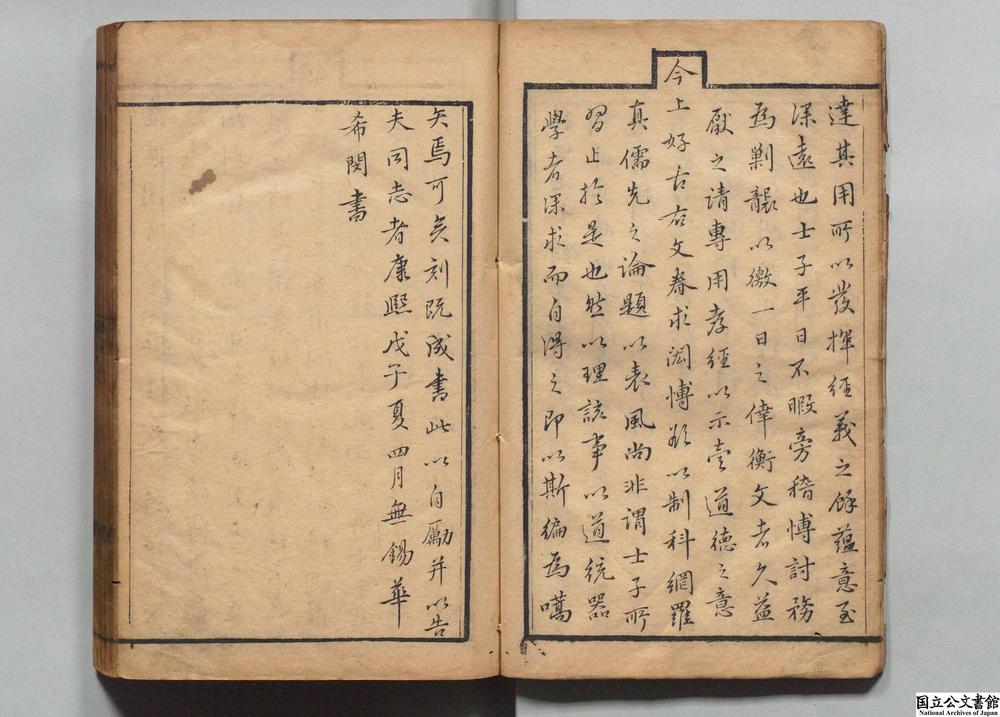 達其用所以發揮經義之餘蘊意至
深遠也士子平日不暇旁稽博討務
為剿襲以徼一日之倖衡文者久益
厭之請專用孝經以示壹道德之意
今上好古右文眷求淵博欲以制科網羅
真儒先之論題以表風尚非謂士子所
習止於是也然以理該事以道統器
學者深求而自得之即以斯編為嚆
矢焉可矣刻既成書此以自勵并以告
夫同志者康熙戊子夏四月無錫華
希閔書
国立公文書館
National Archives of Japan